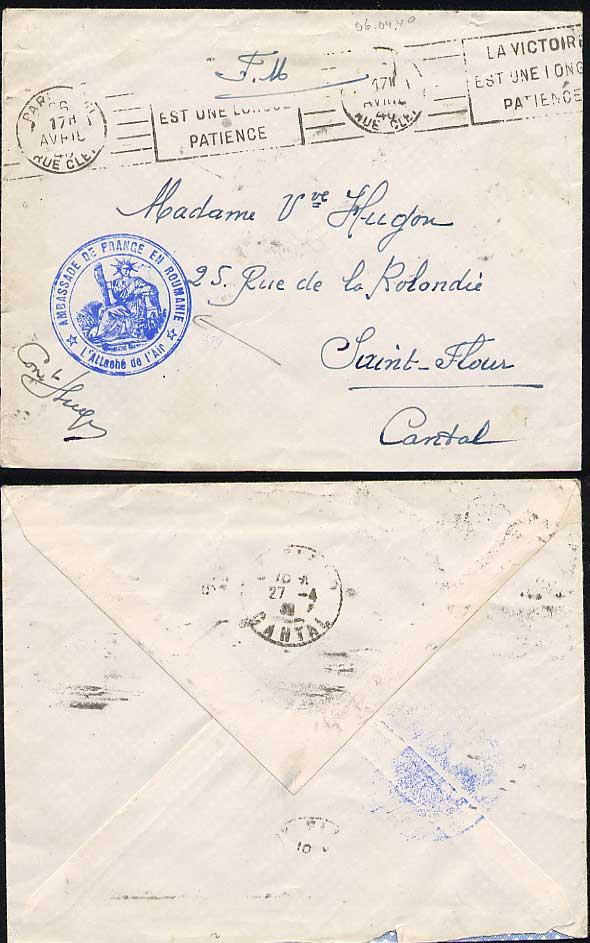 06.04.40
F.M
PARIS
17H
AVRIL
40
RUE CLER
EST UNE LONGUE
PATIENCE
17H
AVRIL
40
RUE CLE
LA VICTOIRE
EST UNE LONG
PATIENCE
Madame Vve Hugon
25 Rue de la Rolandie
Saint-Flour
Cantal
AMBASSADE DE FRANCE EN ROUMANIE
L'Attaché de l'Air
27 -4
CANTAL
10